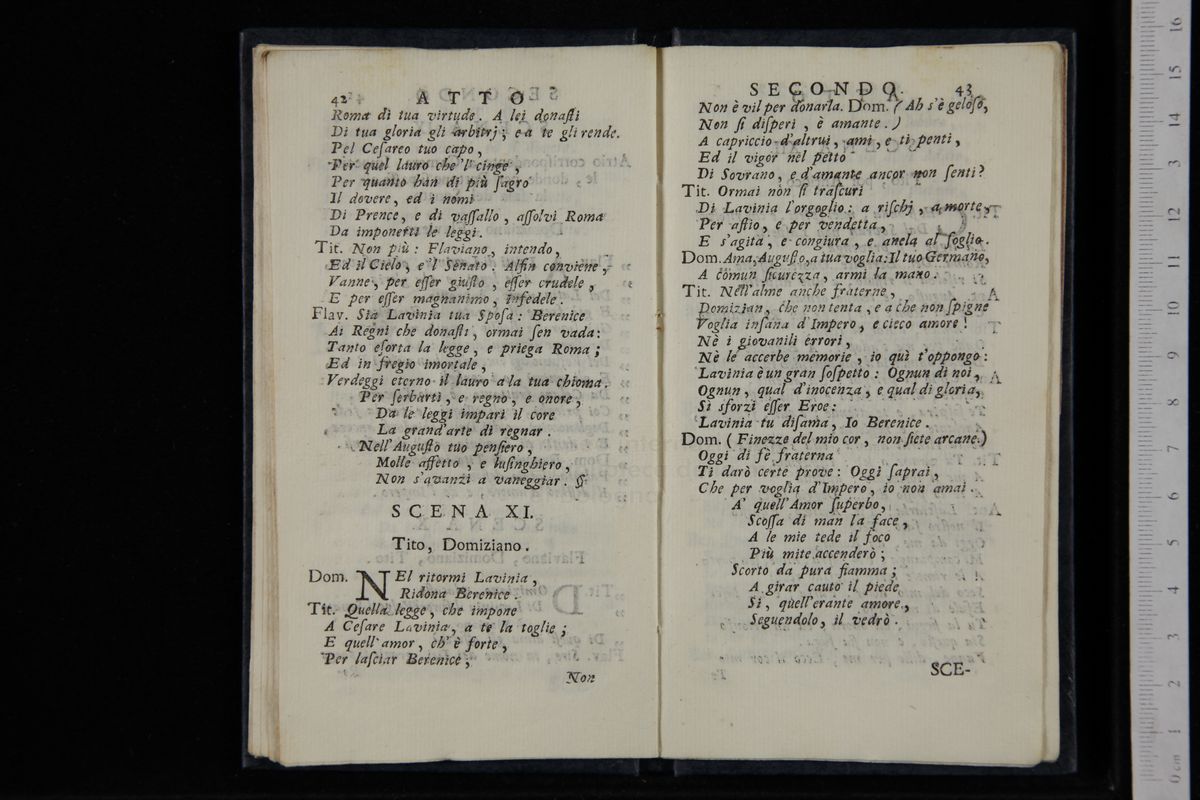 42 ATTO
Roma di tua virtude. A lei donaſti
Di tua gloria gli arbitrj; e a te gli rende.
Pel Ceſareo tuo capo,
Per quel lauro che 'l cinge,
Per quanto han di più ſagro
Il dovere, ed i nomi
Di Prence, e di vaſſallo, aſſolvi Roma
Da imponerti le leggi.
Tit. Non più: Flaviano, intendo,
Ed il Cielo, e 'l Senato. Alfin conviene,
Vanne, per eſſer giuſto, eſſer crudele,
E per eſſer magnanimo, infedele.
Flav. Sia Lavinia tua Spoſa: Berenice
Ai Regni che donaſti, ormai ſen vada:
Tanto eſorta la legge, e priega Roma;
Ed in fregio imortale,
Verdeggi eterno il lauro a la tua chioma.
Per ſerbarti, e regno, e onore,
Da le leggi impari il core
La grand'arte di regnar.
Nell'Auguſto tuo penſiero,
Molle affetto, e luſinghiero,
Non s'avanzi a vaneggiar.
SCENA XI.
Tito, Domiziano.
Dom. NEl ritormi Lavinia,
Ridona Berenice.
Tit. Quella legge, che impone
A Ceſare Lavinia, a te la toglie;
E quell'amor, ch'è forte,
Per laſciar Berenice,
Non
SECONDO. 43
Non è vil per donarla. Dom. (Ah s'è geloſo,
Non ſi diſperi, è amante.)
A capriccio d'altrui, ami, e ti penti,
Ed il vigor nel petto
Di Sovrano, e d'amante ancor non ſenti?
Tit. Ormai non ſi traſcuri
Di Lavinia l'orgoglio: a riſchj, a morte,
Per aſtio, e per vendetta,
E s'agita, e congiura, e anela al ſoglio.
Dom. Ama, Auguſto, a tua voglia: Il tuo Germano,
A cōmun ſicurezza, armi la mano.
Tit. Nell'alme anche fraterne,
Domizian, che non tenta, e a che non ſpigne
Voglia inſana d'Impero, e cieco amore!
Nè i giovanili errori,
Nè le accerbe memorie, io quì t'oppongo:
Lavinia è un gran ſoſpetto: Ognun di noi,
Ognun, qual d'inocenza, e qual di gloria,
Si sforzi eſſer Eroe:
Lavinia tu diſama, Io Berenice.
Dom. (Finezze del mio cor, non ſiete arcane.)
Oggi di fè fraterna
Ti darò certe prove: Oggi ſaprai,
Che per voglia d'Impero, io non amai.
A' quell'Amor ſuperbo,
Scoſſa di man la face,
A le mie tede il foco
Più mite accenderò;
Scorto da pura fiamma;
A girar cauto il piede
Si, quell'erante amore,
Seguendolo, il vedrò.
SCE-
16
15
14
13
12
11
10
9
8
7
6
5
4
3
2
1
0 cm